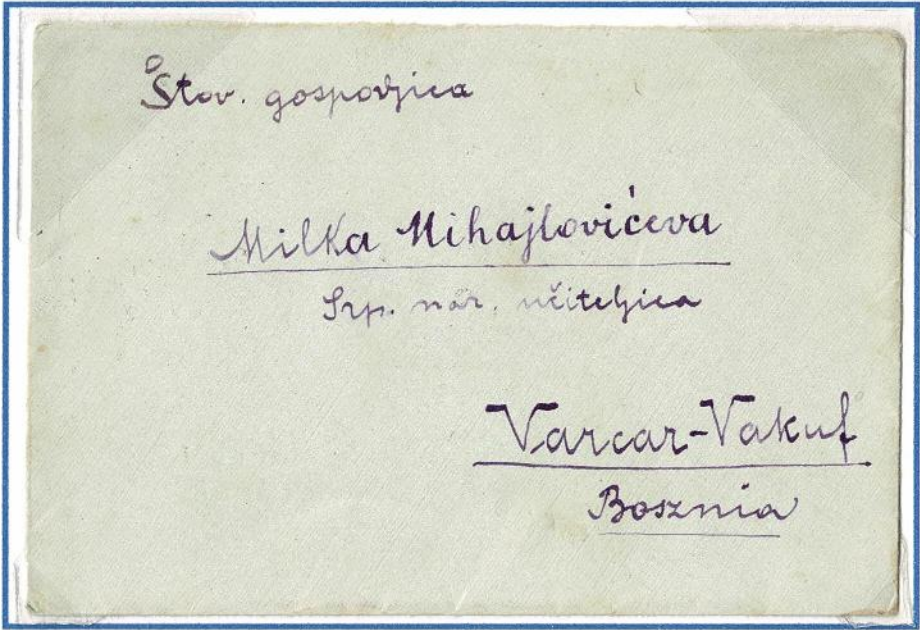 Štov. gospodjica
Milka Mihajlovićeva
Srp. nar. učiteljica
Varcar-Vakuf
Bosznia